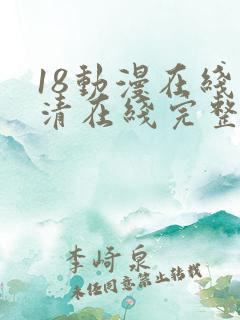 18動漫在綫
清在綫完整
李崎泉
未经同意禁止转载